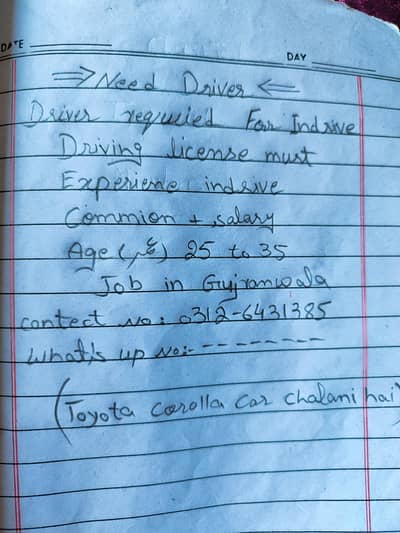 DATE
DAY
⇒ Need Driver ⇐
Driver requried For Indrive
Driving license must
Experiene indrive
Commion + salary
Age (عمر) 25 to 35
Job in Gujranwala
contect no: 0312-6431385
What's up No:- - - - - - - - -
(Toyota corolla car chalani hai)